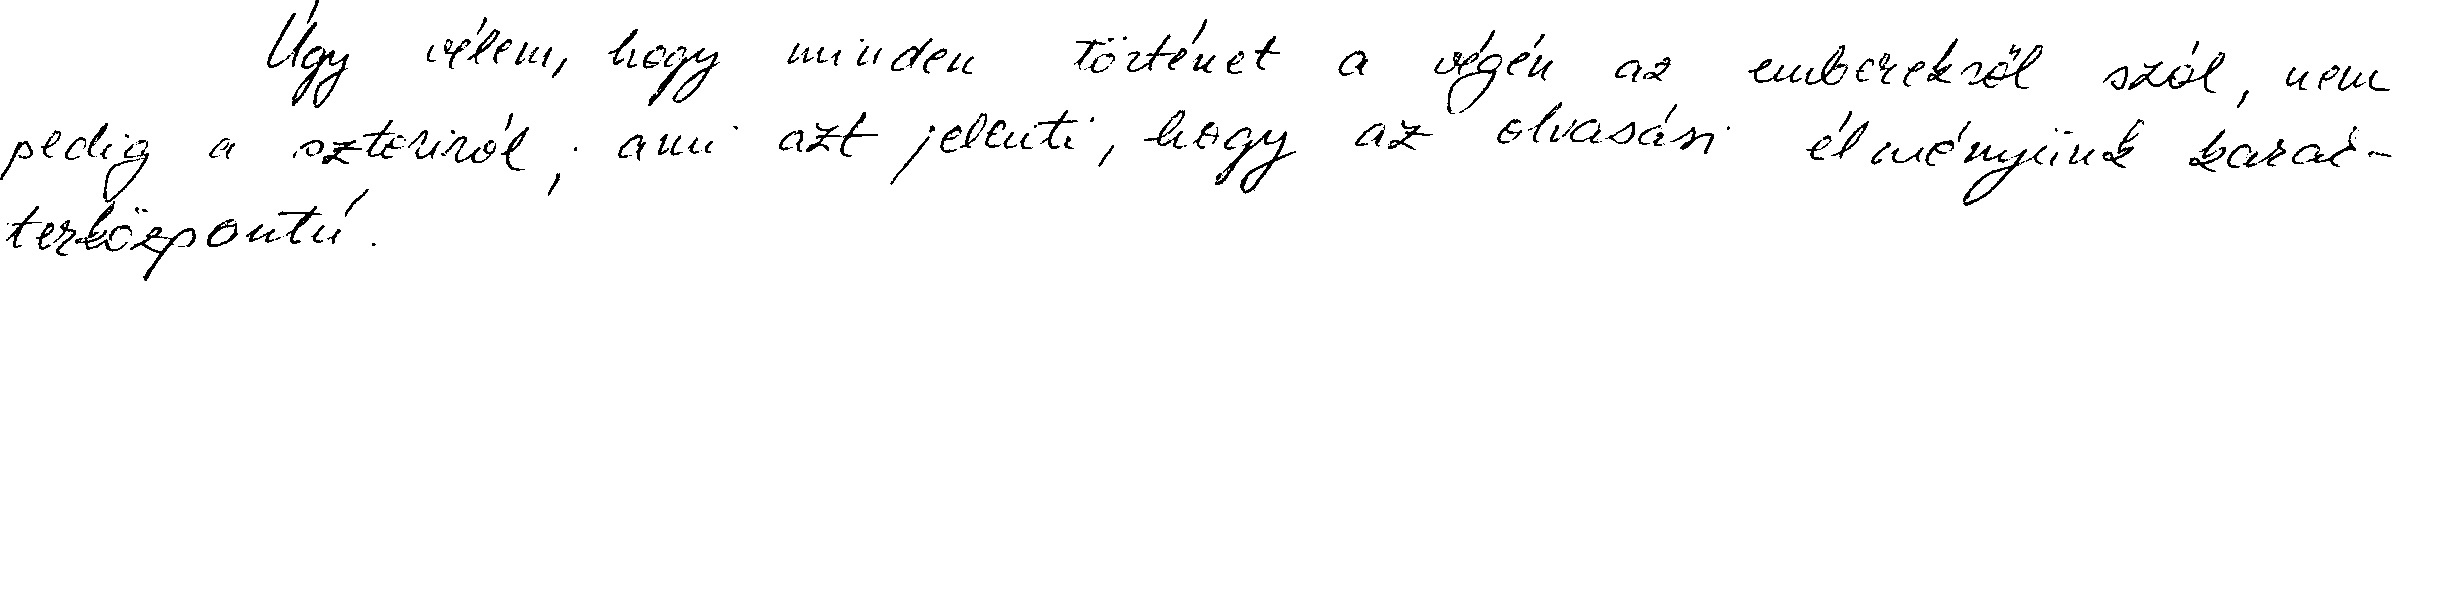 Úgy vélem, hogy minden történet a végén az emberekről szól, nem
pedig a sztoriról; ami azt jelenti, hogy az olvasási élményünk karak-
terközpontú.